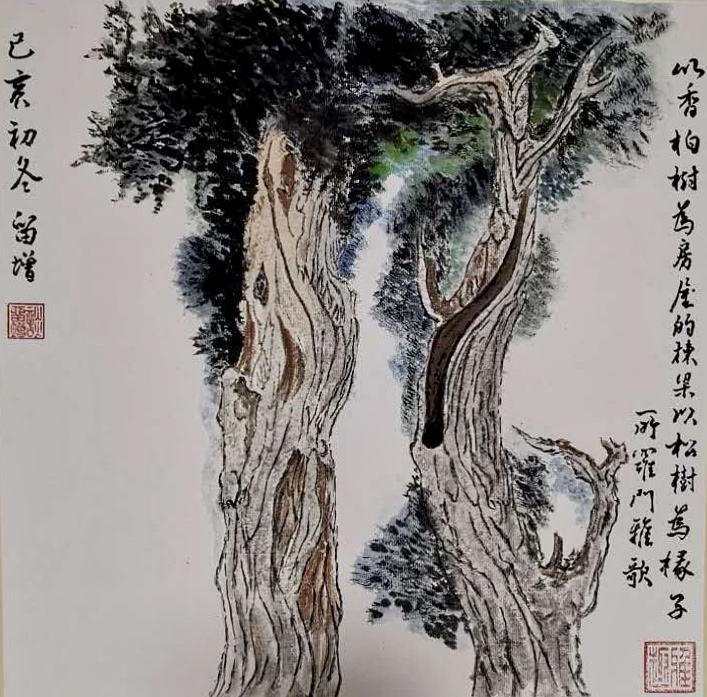 以香柏樹為房屋的棟梁以松樹為椽子
所羅門雅歌
己亥初冬 留增